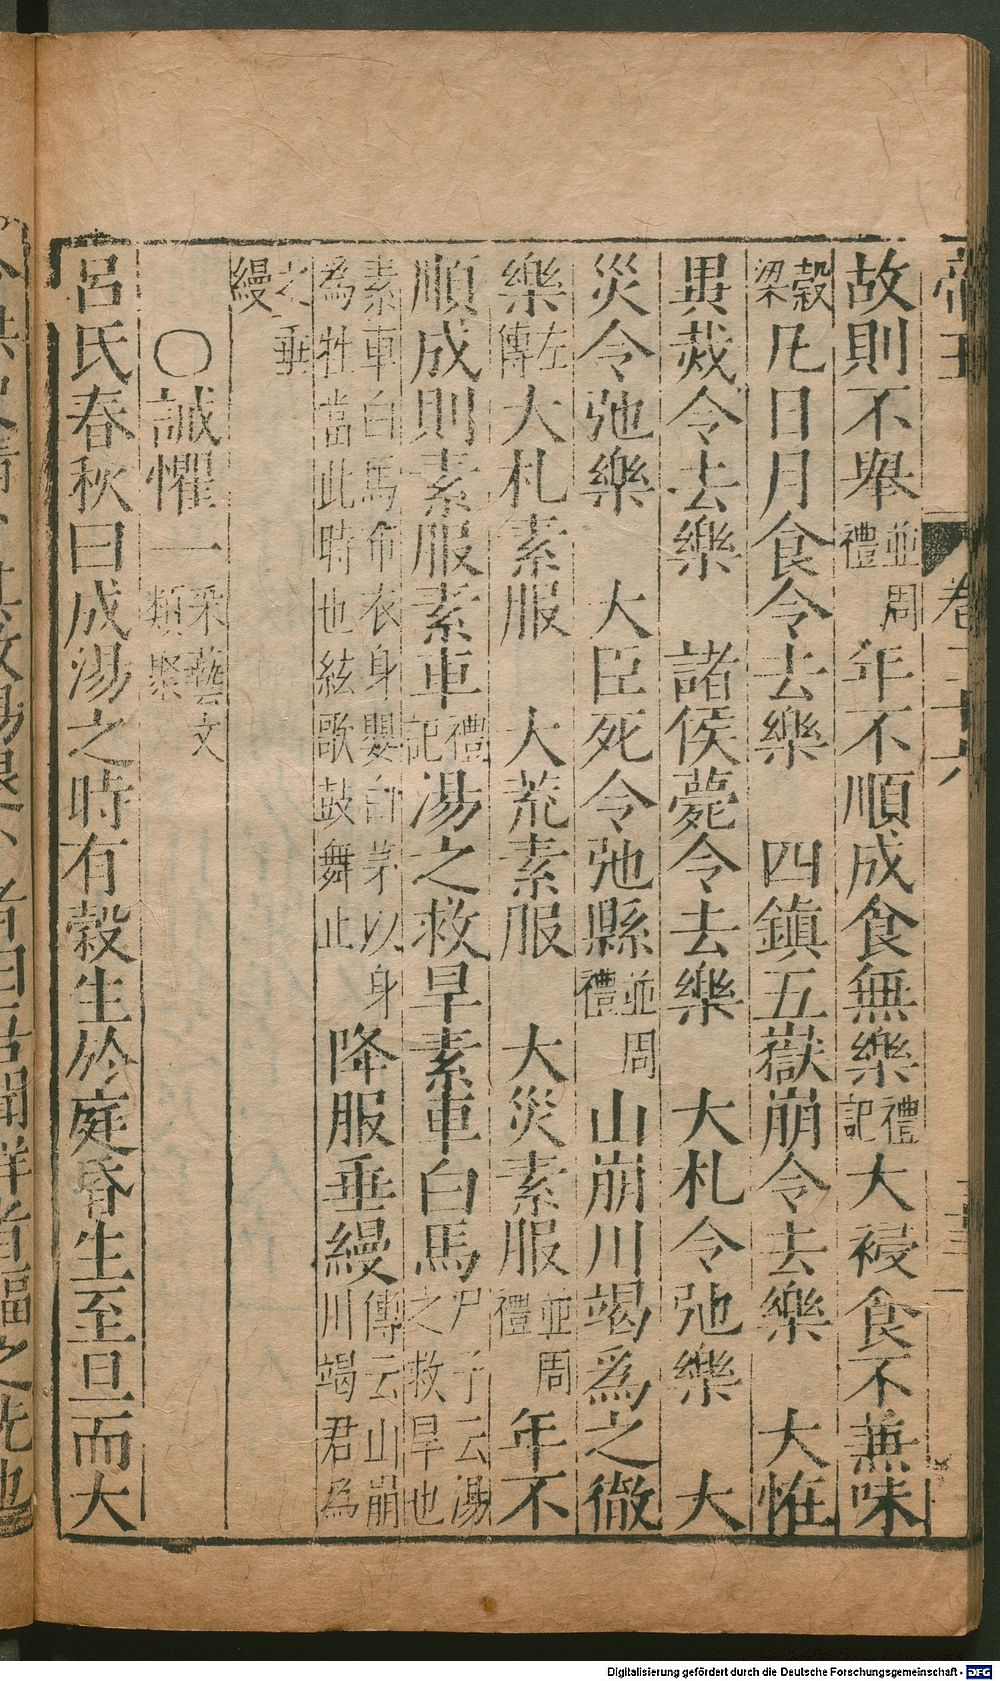 故則不舉並周禮年不順成食無樂禮記大祲食不兼味
穀梁凡日月食令去樂　四鎮五嶽崩令去樂　大恠
異烖令去樂　諸侯薨令去樂　大札令弛樂　大
災令弛樂　大臣死令弛縣並周禮山崩川竭爲之徹
樂左傳大札素服　大荒素服　大災素服並周禮年不
順成則素服素車禮記湯之救旱素車白馬尸子云湯之救旱也
素車白馬布衣身嬰白茅以身為牲當此時也絃歌鼓舞止降服垂縵傳云山崩川竭君為
之垂縵
〇誡懼一采藝文類聚
呂氏春秋曰成湯之時有穀生於庭昏生至旦而大
Digitalisierung gefördert durch die Deutsche Forschungsgemeinschaft - DFG